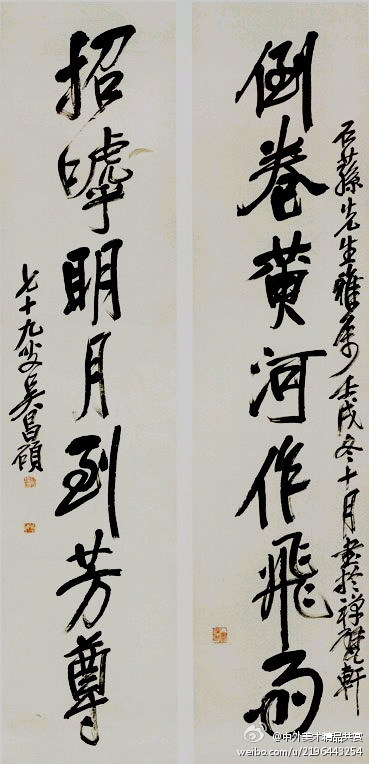 倒卷黄河作飛雨
石蓀先生雅属壬戌冬十月書於禅甓軒
招嘑明月到芳尊
七十九叟吴昌碩
@中外美术精品共赏
weibo.com/u/2196443254